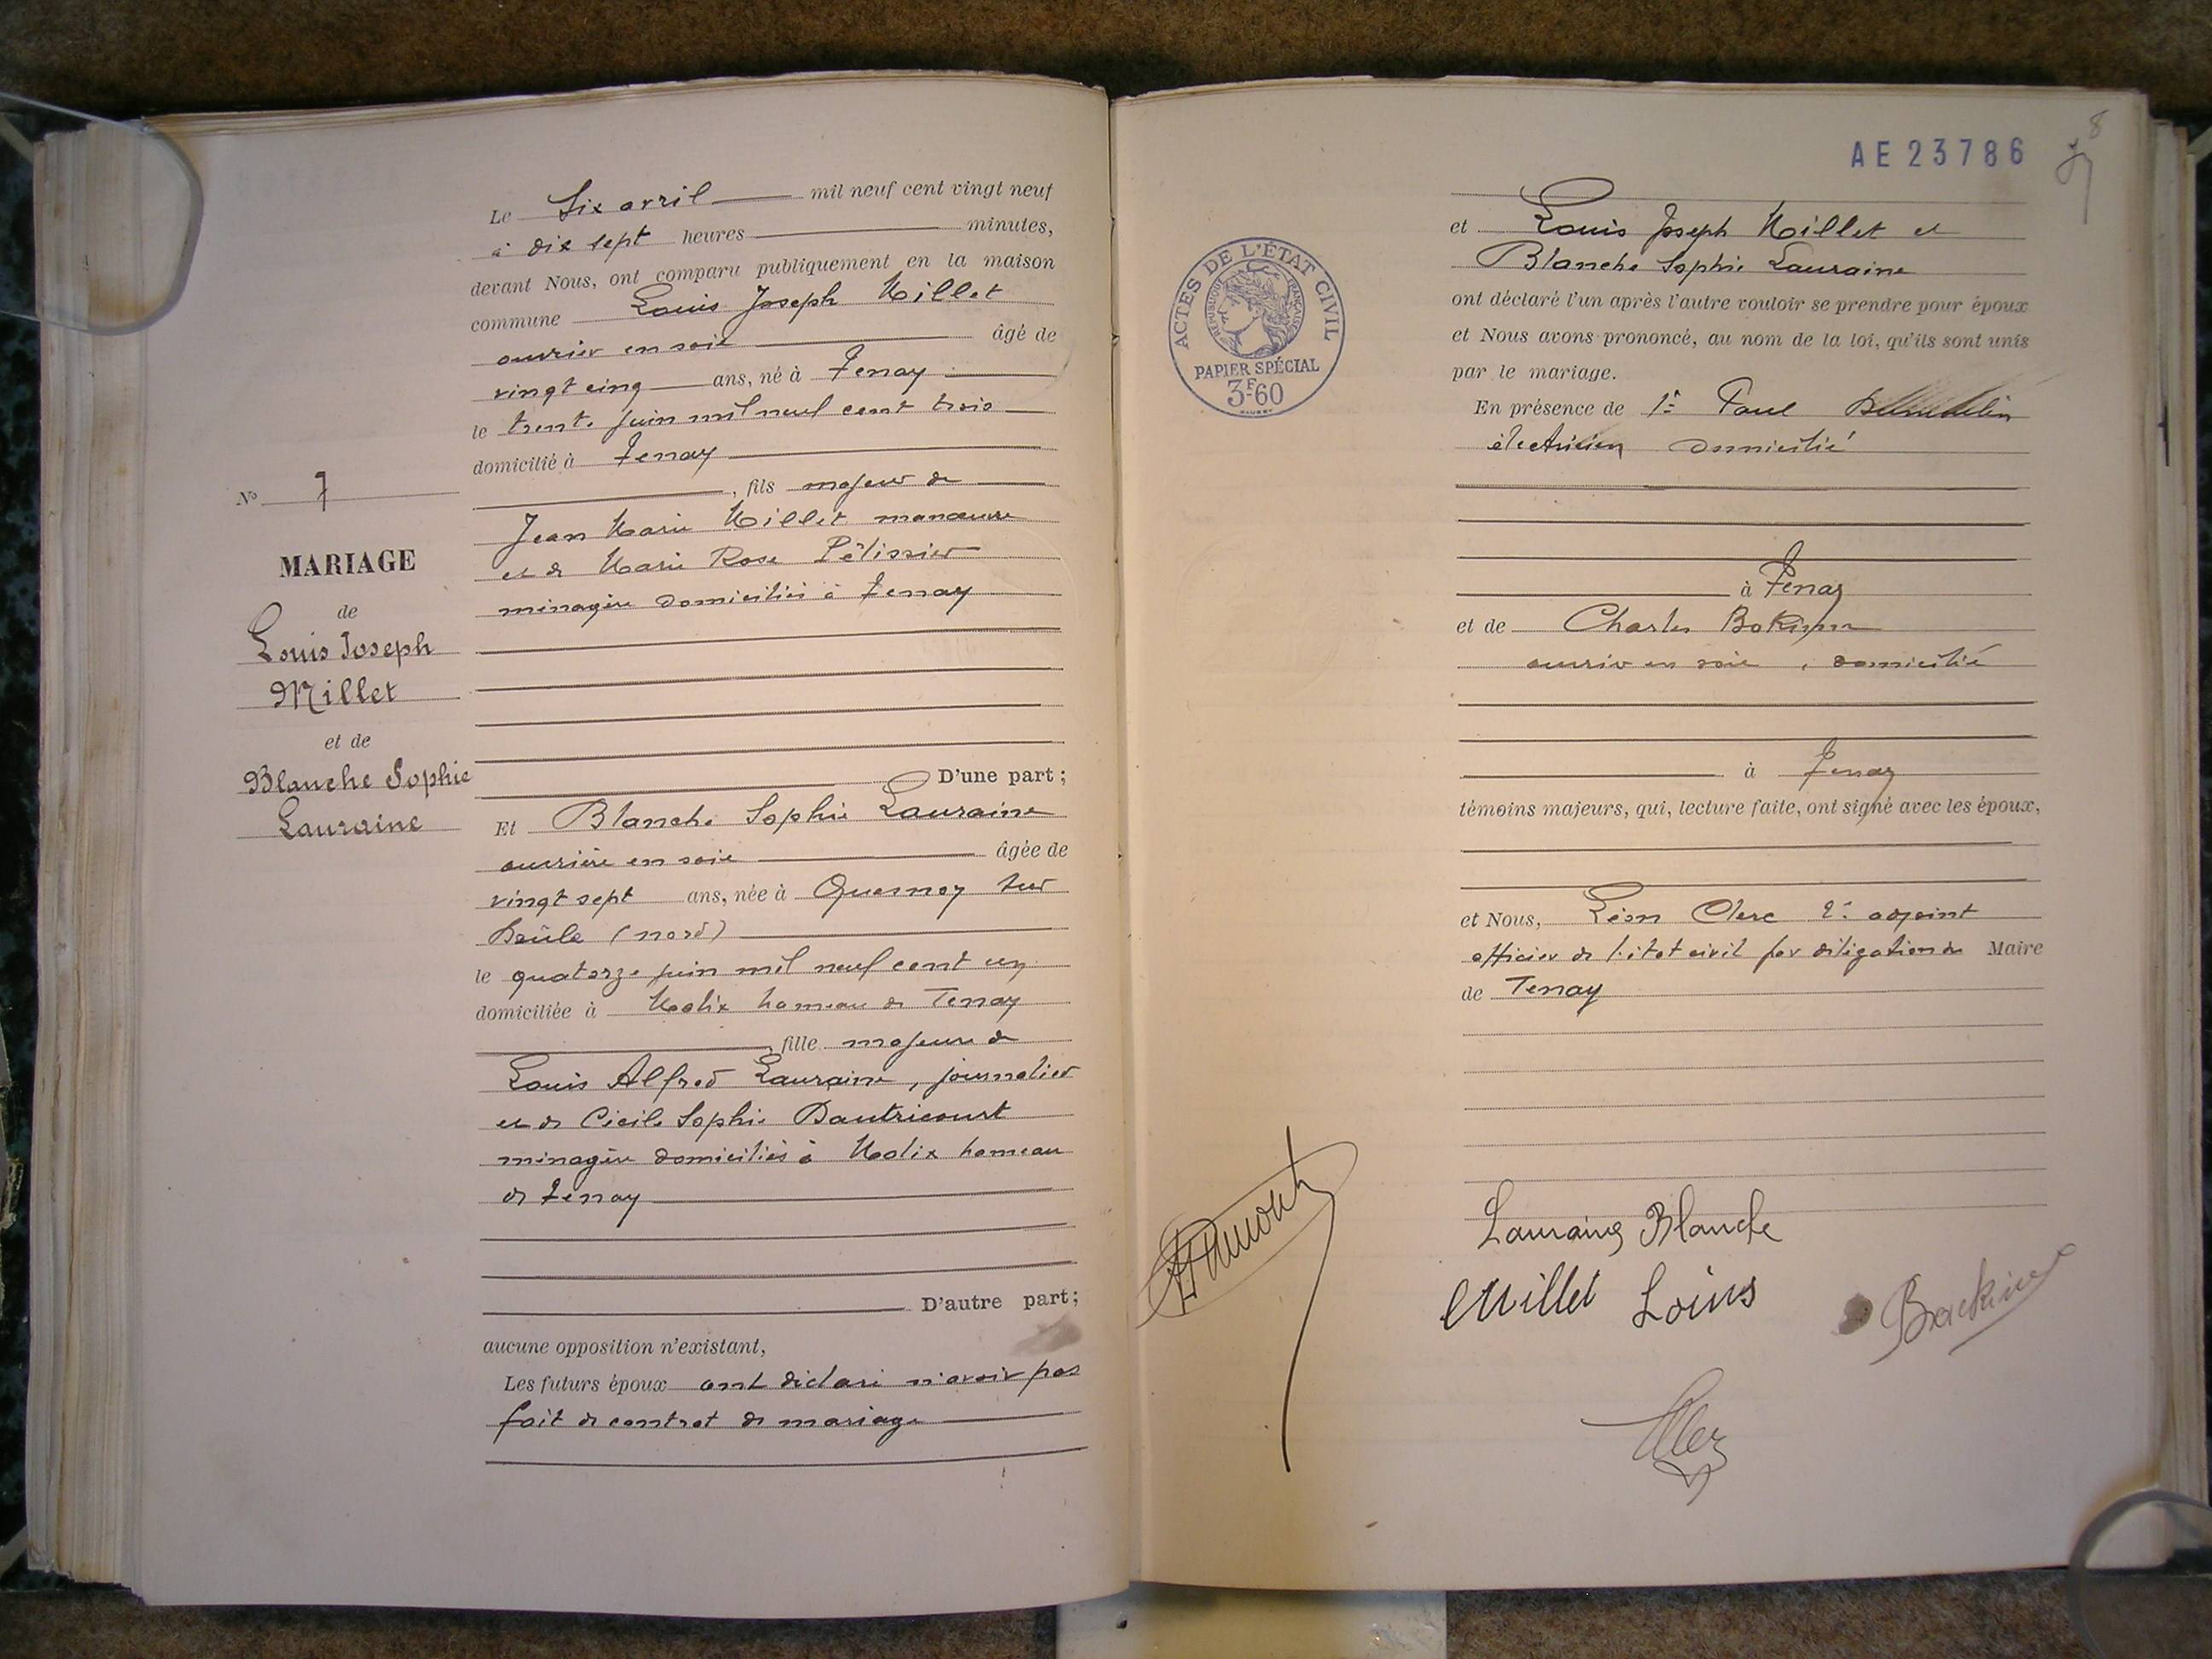 Le Six avril mil neuf cent vingt neuf
à dix sept heures minutes,
devant Nous, ont comparu publiquement en la maison
commune Louis Joseph Millet
ouvrier en soie âgé de
vingt cinq ans, né à Tenay
le trente juin mil neuf cent trois
domicilié à Tenay
, fils majeur de
Jean Marie Millet manœuvre
et de Marie Rose Pélissier
ménagère domiciliés à Tenay
D'une part ;
No 7
MARIAGE
de
Louis Joseph
Millet
et de
Blanche Sophie
Lauraine
Et Blanche Sophie Lauraine
ouvrière en soie âgée de
vingt sept ans, née à Quesnoy sur
Deûle (nord)
le quatorze juin mil neuf cent un
domiciliée à Malix hameau de Tenay
, fille majeure de
Louis Alfred Lauraine, journalier
et de Cécile Sophie Dautricourt
ménagère domiciliés à Malix hameau
de Tenay
D'autre part ;
aucune opposition n'existant,
Les futurs époux ont déclaré n'avoir pas
fait de contrat de mariage
AE 23786
8
ACTES DE L'ÉTAT CIVIL
RÉPUBLIQUE FRANÇAISE
PAPIER SPÉCIAL
3F60
et Louis Joseph Millet et
Blanche Sophie Lauraine
ont déclaré l'un après l'autre vouloir se prendre pour époux
et Nous avons prononcé, au nom de la loi, qu'ils sont unis
par le mariage.
En présence de 1º Paul
électricien domicilié
à Tenay
et de Charles
ouvrier en soie, domicilié
à Tenay
témoins majeurs, qui, lecture faite, ont signé avec les époux,
et Nous, Léon Clerc 2e adjoint
officier de l'état civil par délégation du Maire
de Tenay
Lauraine Blanche
Millet Louis